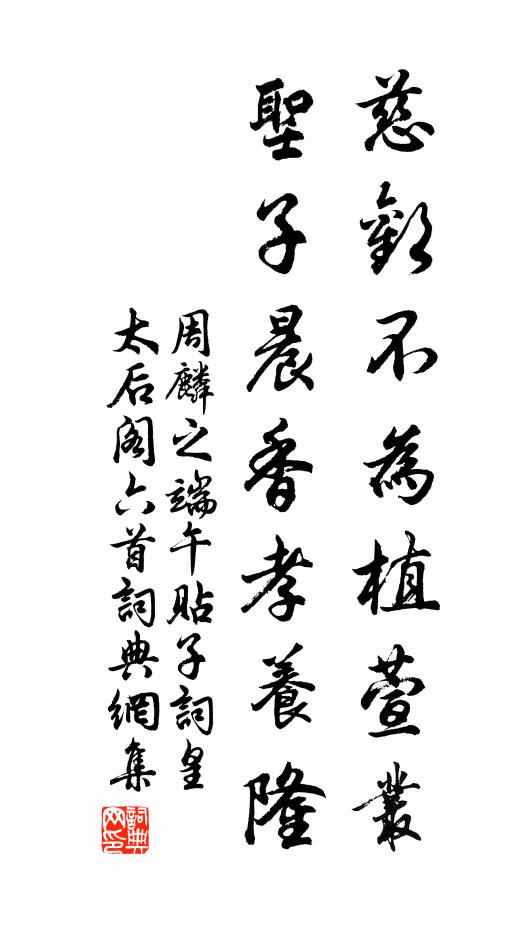 慈歡不為植萱叢
聖子晨香孝養隆
周麟之端午貼子詞皇
太后阁六首詞典網集
詞典
网印